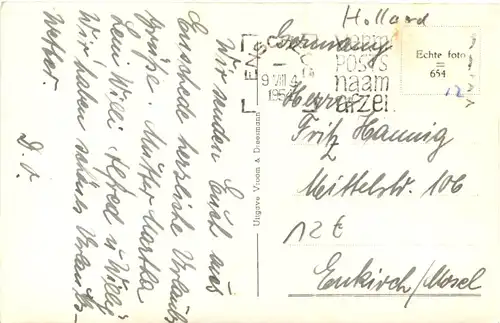 Holland
Germany
Echte foto
=
654
12
POSTS
naam
afzen.
9 VIII
1954
Herrn
Fritz Hannig
Mittelstr. 106
12 €
Enkirch/Mosel
Uitgave Vroom & Dreesmann
Wir senden Euch aus
Enschede herzliche Urlaubs
grüße. Mutter Martha
Leni Willi Alfred u Willi
Wir haben schönes Urlaubs-
wetter.
D. O.